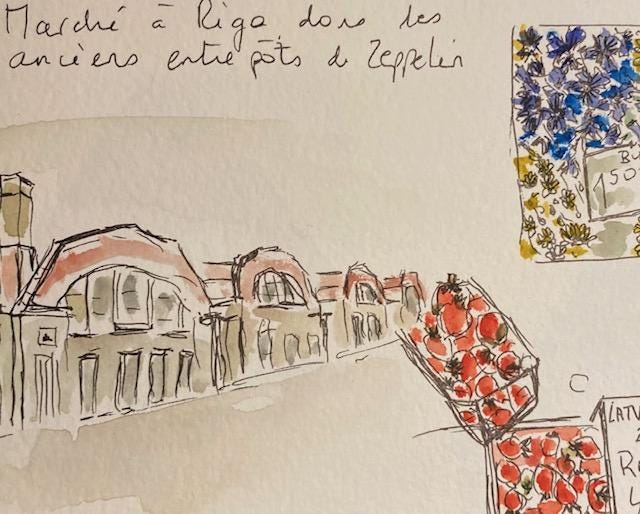 Marché à Riga dans les
anciens entrepôts de Zeppelin
150
LATV